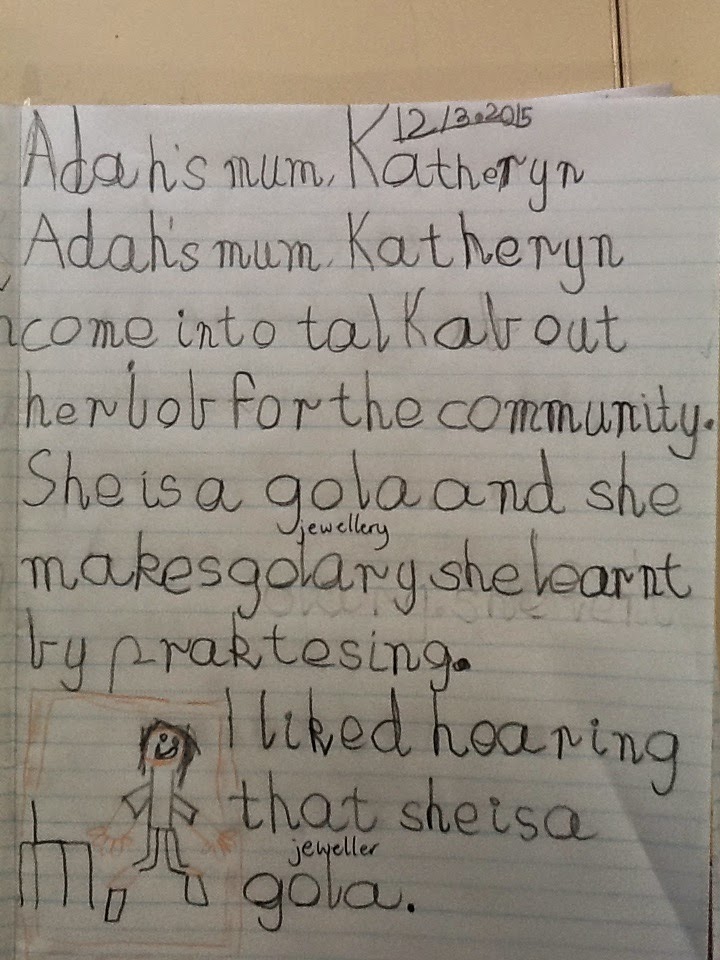 12/3.2015
Adah's mum, Katheryn
Adah's mum, Katheryn
come into talk about
her job for the community.
She is a gola and she
jewellery
makes golary she learnt
by praktesing.
I liked hearing
that she is a
jeweller
gola.